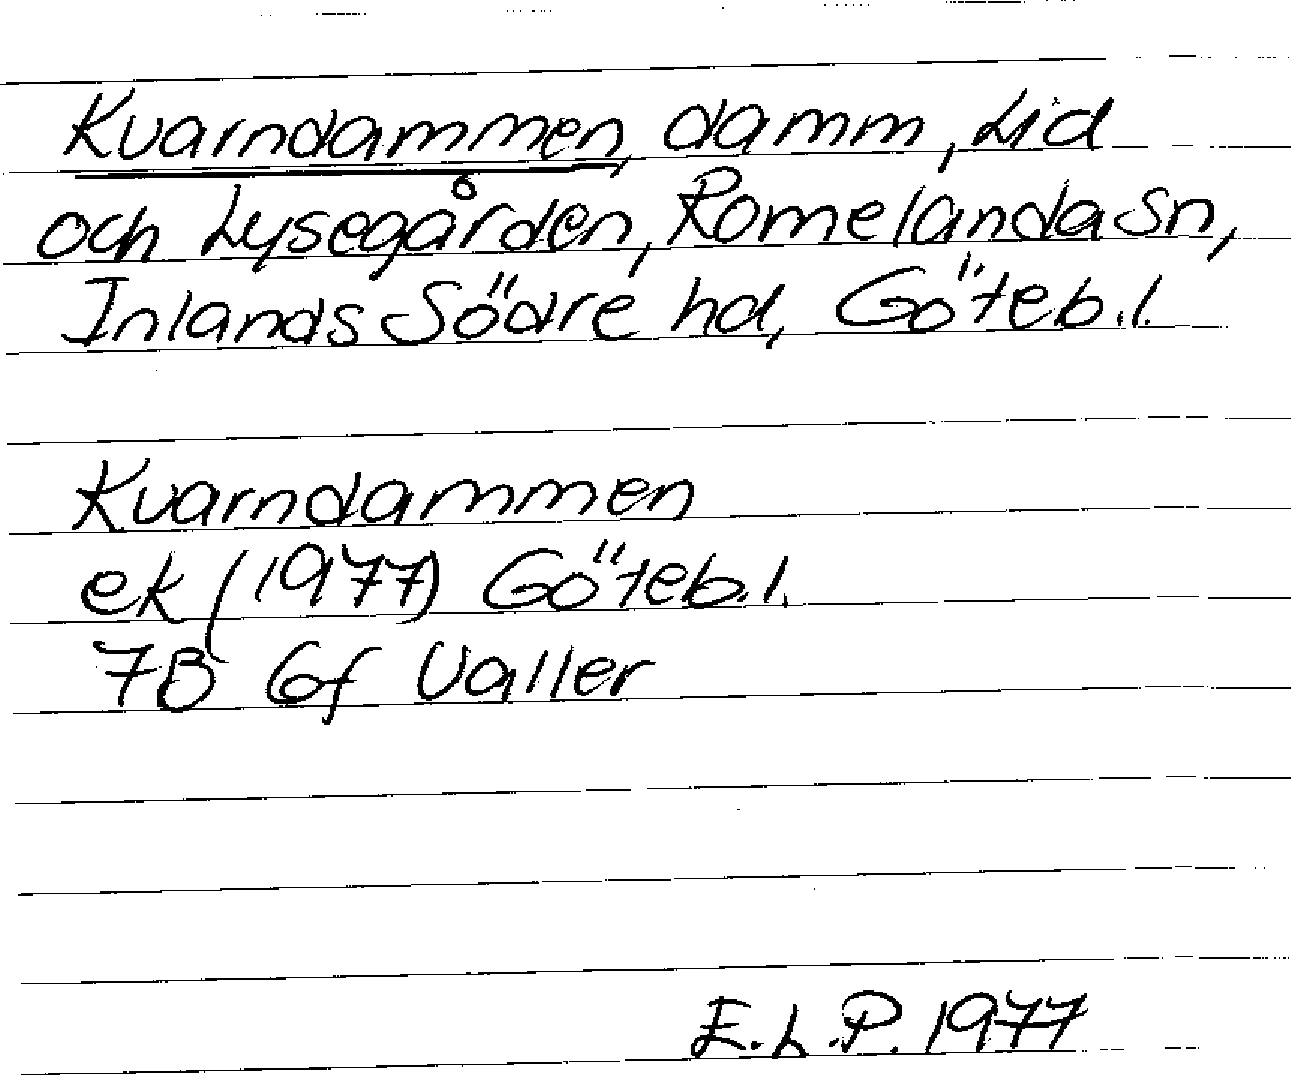 Kvarndammen, damm, Lid
och Lysegården, Romelanda sn,
Inlands Södre hd, Göteb.l.
Kvarndammen
ek (1977) Göteb.l.
7B Gf Valler
E.L.P. 1977